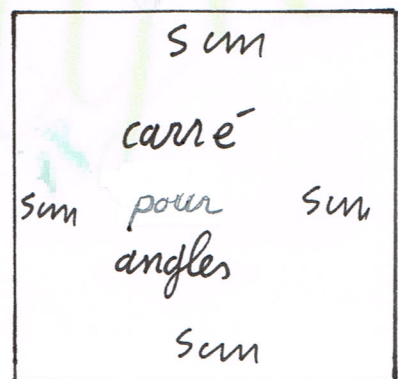 5 cm
carré
5cm pour 5cm
angles
5cm